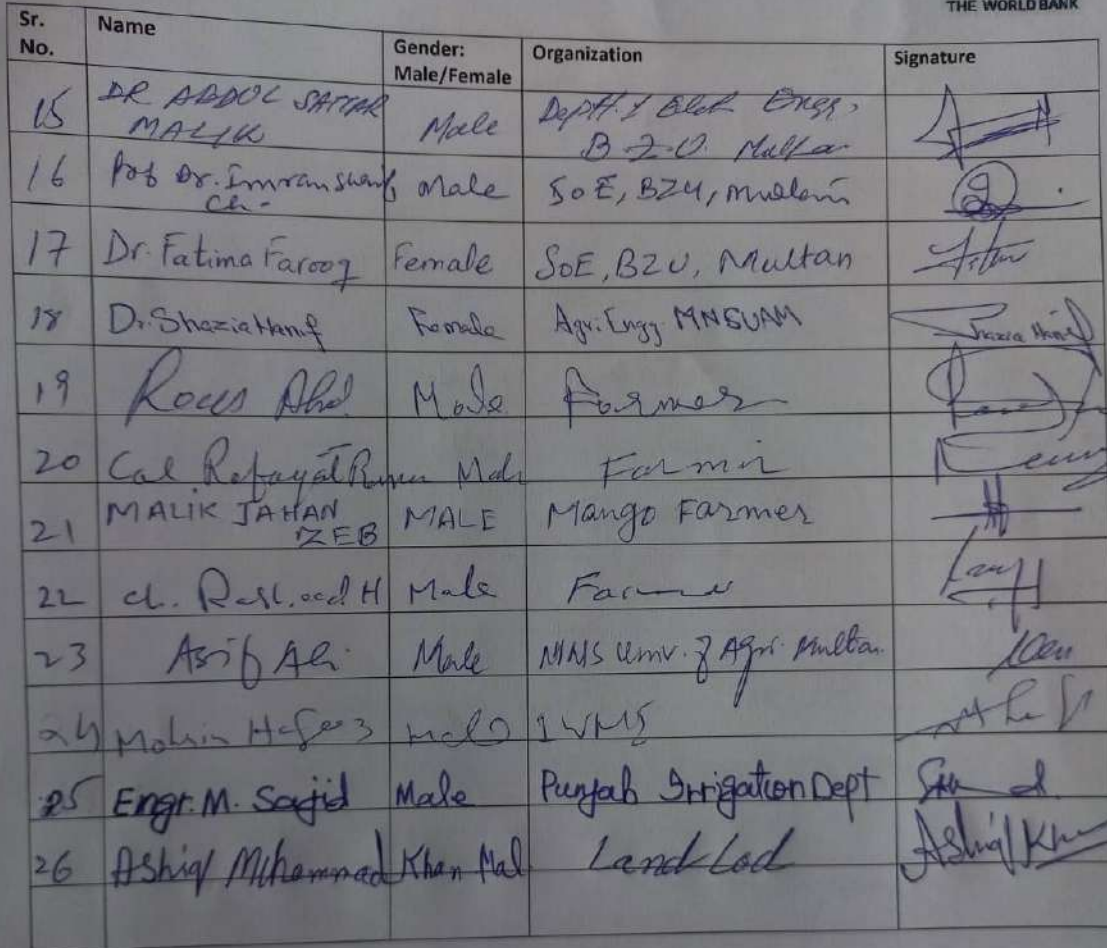 THE WORLD BANK
Sr. No. Name Gender: Male/Female Organization Signature
15 DR ABDUL SATTAR MALIK Male Deptt. Engg, B.Z.U. Multan
16 Prof Dr. Imran Sharif Ch. Male SoE, BZU, Multan
17 Dr. Fatima Farooq Female SoE, BZU, Multan
18 Dr. Shazia Hanif Female Agri. Engg. MNSUAM Shazia Hanif
19 Male Farmer
20 Col Male Farmer
21 MALIK JAHAN ZEB MALE Mango Farmer
22 Ch. H Male Farmer
23 Asif Ali Male MNS Univ. of Agri. Multan.
24 Mohsin Hafeez Male
25 Engr. M. Sajid Male Punjab Irrigation Dept
26 Ashiq Muhammad Khan Mal Land Lod Ashiq Khan